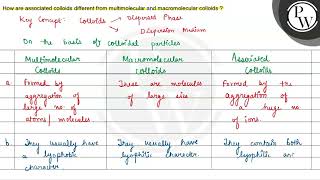 How are associated colloids different from multimolecular and macromolecular colloids ?
Key Concept: Colloids
Dispersed Phase
Dispersion Medium
On the basis of colloidal particles
Multimolecular Colloids
Macromolecular colloids
Associated Colloids
a.
Formed by
aggregation of
large no. of
atoms / molecules
These are molecules
of large size
Formed by the
aggregation of
a huge no
of ions.
b.
They usually have
a lyophobic
character
They usually have
lyophilic character.
They contain both
lyophilic an
PW